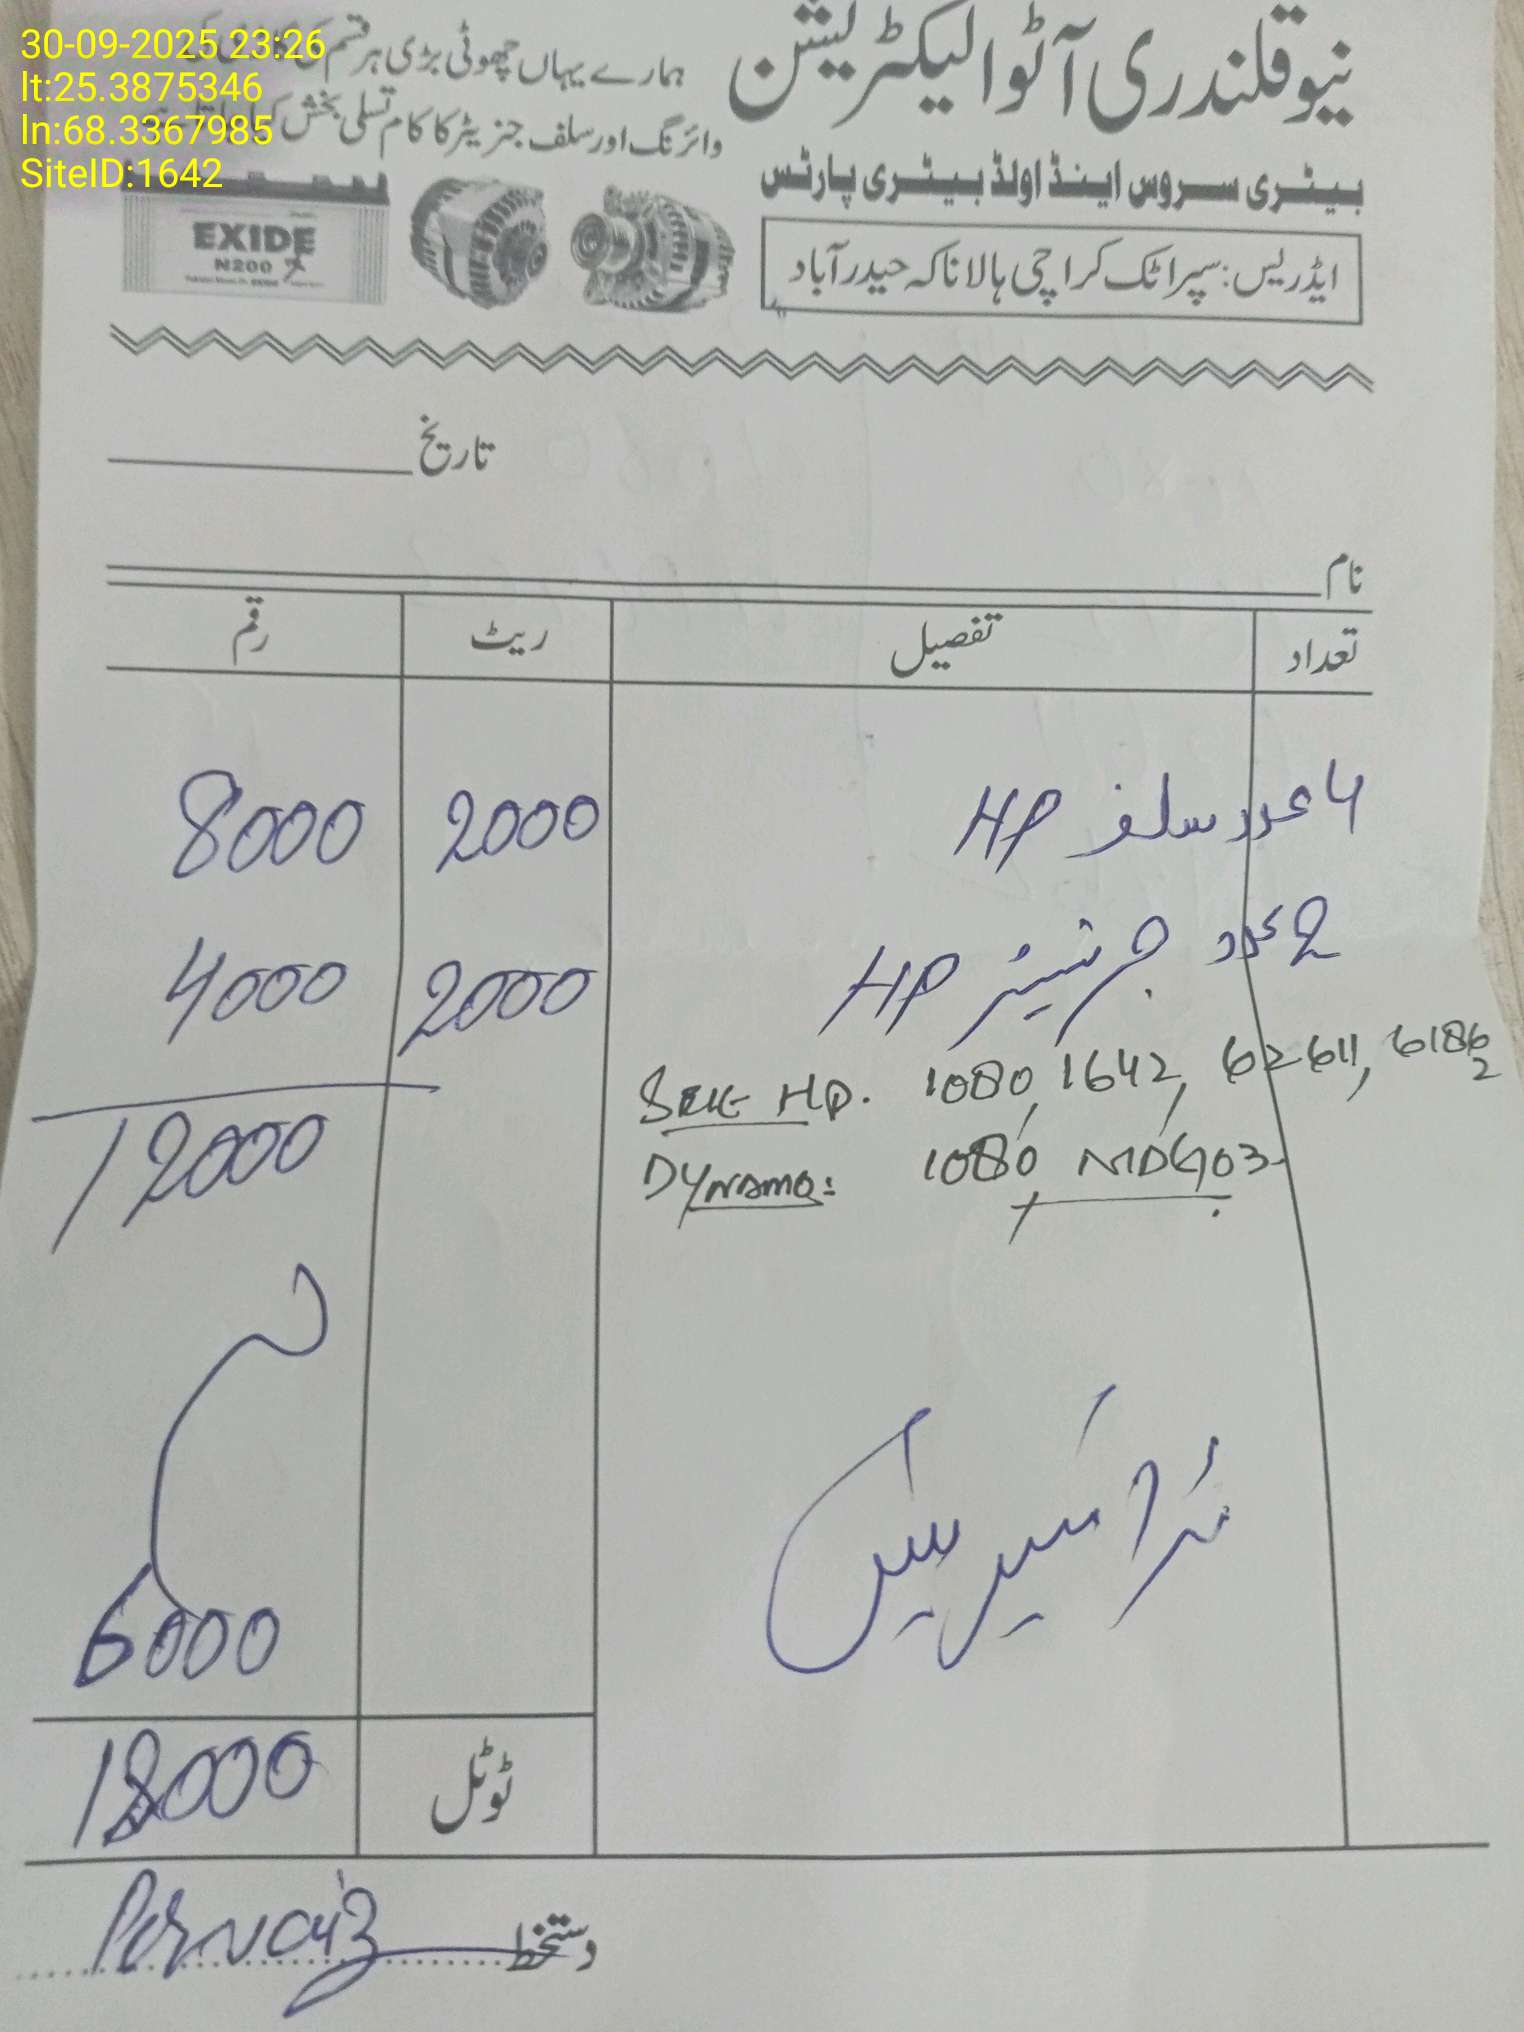 30-09-2025 23:26
lt:25.3875346
ln:68.3367985
SiteID:1642
نیو قلندری آٹو الیکٹریشن
ہمارے یہاں چھوٹی بڑی ہر قسم کی
وائرنگ اور سلف جنریٹر کا کام تسلی بخش کیا
بیٹری سروس اینڈ اولڈ بیٹری پارٹس
ایڈریس: سپر اٹک کراچی ہالا ناکہ حیدرآباد
EXIDE
N200
تاریخ
نام
تعداد تفصیل ریٹ رقم
4 عدد سلف HP 2000 8000
2 عدد جرنیٹر HP 2000 4000
Self HP. 1080, 1642, 62611, 6186
2
Dynamo: 1080, MDG03
12000
6000
ٹوٹل 18000
دستخط Pervaiz